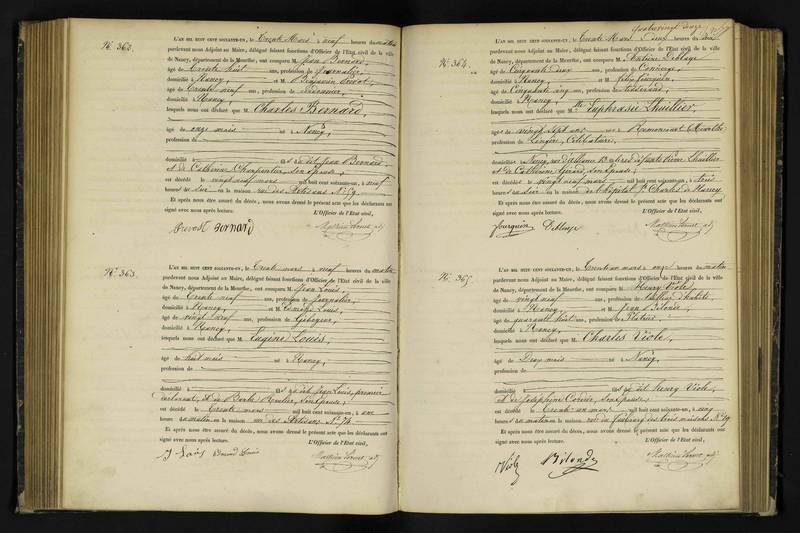 N.° 362.
L'AN MIL HUIT CENT SOIXANTE-UN, le Trente Mars à neuf heures du matin
pardevant nous Adjoint au Maire, délégué faisant fonctions d'Officier de l'Etat civil de la ville
de Nancy, département de la Meurthe, ont comparu M. Jean Bernard,
âgé de Trente huit ans, profession de Journalier,
domicilié à Nancy, et M. Benjamin Prevot
âgé de Trente neuf ans, profession de
domicilié à Nancy,
lesquels nous ont déclaré que M. Charles Bernard,
âgé de onze mois né à Nancy,
profession de
domicilié à fils de dit Jean Bernard
et de Catherine Charpentier, son épouse,
est décédé le vingt neuf mars mil huit cent soixante-un, à neuf
heures du soir en la maison rue des Artisans N.° 59.
Et après nous être assuré du décès, nous avons dressé le présent acte que les déclarants ont
signé avec nous après lecture. L'Officier de l'Etat civil,
Prevot Bernard
N.° 363.
L'AN MIL HUIT CENT SOIXANTE-UN, le Trente mars à neuf heures du matin
pardevant nous Adjoint au Maire, délégué faisant fonctions d'Officier de l'Etat civil de la ville
de Nancy, département de la Meurthe, ont comparu M. Jean Louis,
âgé de Trente neuf ans, profession de Journalier,
domicilié à Nancy, et M. Louis,
âgé de vingt neuf ans, profession de
domicilié à Nancy,
lesquels nous ont déclaré que M. Eugène Louis,
âgé de huit mois né à Nancy,
profession de
domicilié à fils de dit Jean Louis, premier
déclarant, et de son épouse,
est décédé le Trente mars mil huit cent soixante-un, à une
heure du matin en la maison rue des Artisans N.° 74.
Et après nous être assuré du décès, nous avons dressé le présent acte que les déclarants ont
signé avec nous après lecture. L'Officier de l'Etat civil,
J Louis Louis
quatrevingt onze
N.° 364.
L'AN MIL HUIT CENT SOIXANTE-UN, le Trente Mars à dix heures du matin
pardevant nous Adjoint au Maire, délégué faisant fonctions d'Officier de l'Etat civil de la ville
de Nancy, département de la Meurthe, ont comparu M. Antoine Deblaye
âgé de Cinquante deux ans, profession de Concierge,
domicilié à Nancy, et M. Félix Fourquin,
âgé de Cinquante cinq ans, profession de Tisserand,
domicilié à Nancy,
lesquels nous ont déclaré que M. Euphrasie Lhuillier
âgée de vingt sept ans née à Remoncourt (Meurthe)
profession de Lingère, Célibataire,
domiciliée à Nancy, fille de défunts Lhuillier
et de Catherine Gérard, son épouse,
est décédée le vingt neuf mars mil huit cent soixante-un, à trois
heures du soir en la maison de l'hôpital St Charles de Nancy.
Et après nous être assuré du décès, nous avons dressé le présent acte que les déclarants ont
signé avec nous après lecture. L'Officier de l'Etat civil,
Fourquin Deblaye
N.° 365.
L'AN MIL HUIT CENT SOIXANTE-UN, le Trente un mars à onze heures du matin
pardevant nous Adjoint au Maire, délégué faisant fonctions d'Officier de l'Etat civil de la ville
de Nancy, département de la Meurthe, ont comparu M. Henry Viole
âgé de vingt neuf ans, profession de Tailleur d'habits,
domicilié à Nancy, et M. Jean
âgé de quarante huit ans, profession de Platrier
domicilié à Nancy,
lesquels nous ont déclaré que M. Charles Viole,
âgé de Deux mois né à Nancy,
profession de
domicilié à fils de dit Henry Viole,
et de Joséphine Cordier, son épouse,
est décédé le Trente un mars mil huit cent soixante-un, à cinq
heures du matin en la maison rue du Faubourg des trois maisons N.° 19.
Et après nous être assuré du décès, nous avons dressé le présent acte que les déclarants ont
signé avec nous après lecture. L'Officier de l'Etat civil,